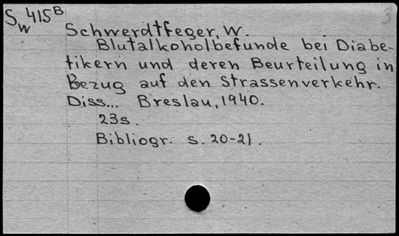 S 415B 3
w
Schwerdtfeger, W.
Blutalkoholbefunde bei Diabe-
tikern und deren Beurteilung in
Bezug auf den Strassenverkehr.
Diss... Breslau, 1940.
23s.
Bibliogr. s. 20-21.